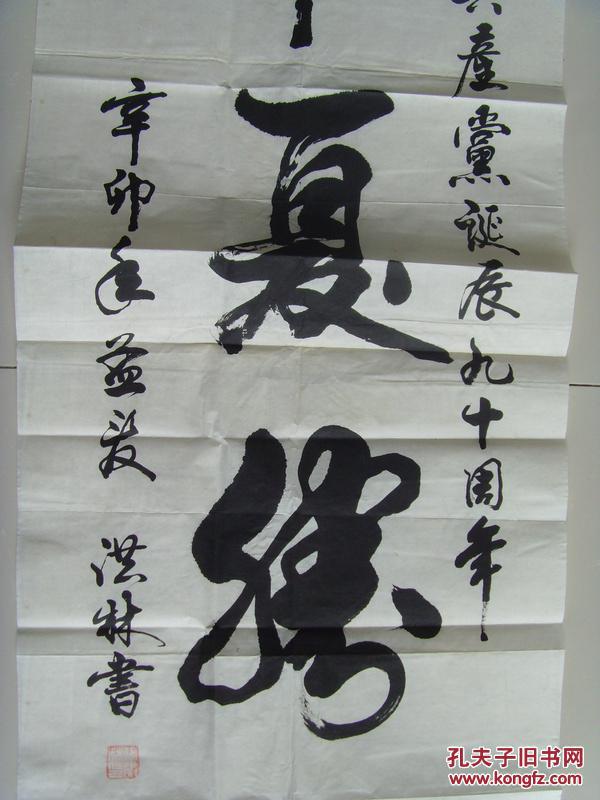 產黨誕辰九十周年
夏
辛卯年 洪林書
孔夫子旧书网
www.kongfz.com